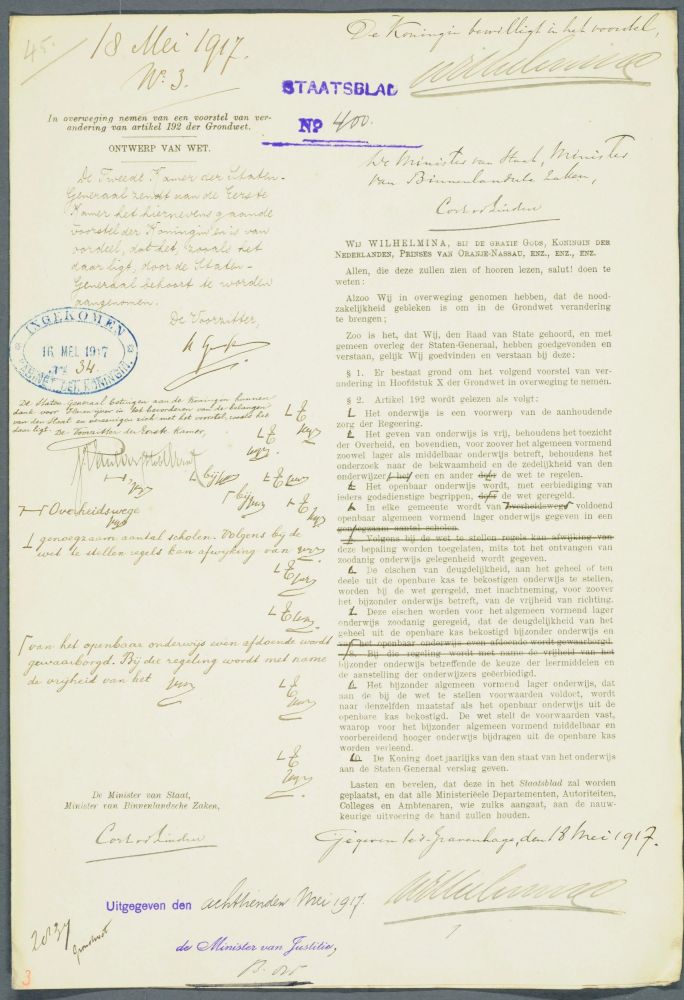 45.
18 Mei 1917.
No. 3.
De Koningin bewilligt in het voorstel,
Wilhelmina
STAATSBLAD
No 400.
In overweging nemen van een voorstel van ver-
andering van artikel 192 der Grondwet.
ONTWERP VAN WET.
De Tweede Kamer der Staten-
Generaal zendt aan de Eerste
Kamer het hiernevens gaande
voorstel der Koningin en is van
oordeel, dat het, zooals het
daar ligt, door de Staten-
Generaal behoort te worden
aangenomen.
De Voorzitter,
INGEKOMEN
16 MEI. 1917
No 34.
KABINET DER KONINGIN
De Staten-Generaal betuigen aan de Koningin hunnen
dank voor Haren ijver in het bevorderen van de belangen
van den Staat en vereenigen zich met het voorstel, zooals het
daar ligt. De Voorzitter der Eerste Kamer,
bij
bij
Overheidswege
genoegzaam aantal scholen. Volgens bij de
wet te stellen regels kan afwijking van
van het openbaar onderwijs even afdoende wordt
gewaarborgd. Bij die regeling wordt met name
de vrijheid van het
De Minister van Staat,
Minister van Binnenlandsche Zaken,
Cort vd Linden
De Minister van Staat, Minister
van Binnenlandsche Zaken,
Cort vd Linden
WIJ WILHELMINA, BIJ DE GRATIE GODS, KONINGIN DER
NEDERLANDEN, PRINSES VAN ORANJE-NASSAU, ENZ., ENZ., ENZ.
Allen, die deze zullen zien of hooren lezen, salut! doen te
weten:
Alzoo Wij in overweging genomen hebben, dat de nood-
zakelijkheid gebleken is om in de Grondwet verandering
te brengen;
Zoo is het, dat Wij, den Raad van State gehoord, en met
gemeen overleg der Staten-Generaal, hebben goedgevonden en
verstaan, gelijk Wij goedvinden en verstaan bij deze:
§ 1. Er bestaat grond om het volgend voorstel van ver-
andering in Hoofdstuk X der Grondwet in overweging te nemen.
§ 2. Artikel 192 wordt gelezen als volgt:
Het onderwijs is een voorwerp van de aanhoudende
zorg der Regeering.
Het geven van onderwijs is vrij, behoudens het toezicht
der Overheid, en bovendien, voor zoover het algemeen vormend
zoowel lager als middelbaar onderwijs betreft, behoudens het
onderzoek naar de bekwaamheid en de zedelijkheid van den
onderwijzer, het een en ander door de wet te regelen.
Het openbaar onderwijs wordt, met eerbiediging van
ieders godsdienstige begrippen, door de wet geregeld.
In elke gemeente wordt van Overheidswege voldoend
openbaar algemeen vormend lager onderwijs gegeven in een
genoegzaam aantal scholen.
Volgens bij de wet te stellen regels kan afwijking van
deze bepaling worden toegelaten, mits tot het ontvangen van
zoodanig onderwijs gelegenheid wordt gegeven.
De eischen van deugdelijkheid, aan het geheel of ten
deele uit de openbare kas te bekostigen onderwijs te stellen,
worden bij de wet geregeld, met inachtneming, voor zoover
het bijzonder onderwijs betreft, van de vrijheid van richting.
Deze eischen worden voor het algemeen vormend lager
onderwijs zoodanig geregeld, dat de deugdelijkheid van het
geheel uit de openbare kas bekostigd bijzonder onderwijs en
het openbaar onderwijs even afdoende wordt gewaarborgd.
Bij die regeling wordt met name de vrijheid van het
bijzonder onderwijs betreffende de keuze der leermiddelen en
de aanstelling der onderwijzers geëerbiedigd.
Het bijzonder algemeen vormend lager onderwijs, dat
aan de bij de wet te stellen voorwaarden voldoet, wordt
naar denzelfden maatstaf als het openbaar onderwijs uit de
openbare kas bekostigd. De wet stelt de voorwaarden vast,
waarop voor het bijzonder algemeen vormend middelbaar en
voorbereidend hooger onderwijs bijdragen uit de openbare kas
worden verleend.
De Koning doet jaarlijks van den staat van het onderwijs
aan de Staten-Generaal verslag geven.
Lasten en bevelen, dat deze in het Staatsblad zal worden
geplaatst, en dat alle Ministerieële Departementen, Autoriteiten,
Colleges en Ambtenaren, wie zulks aangaat, aan de nauw-
keurige uitvoering de hand zullen houden.
Gegeven te 's-Gravenhage, den 18 Mei 1917.
Wilhelmina
Uitgegeven den achttienden Mei 1917.
de Minister van Justitie,
2037
Grondwet
3